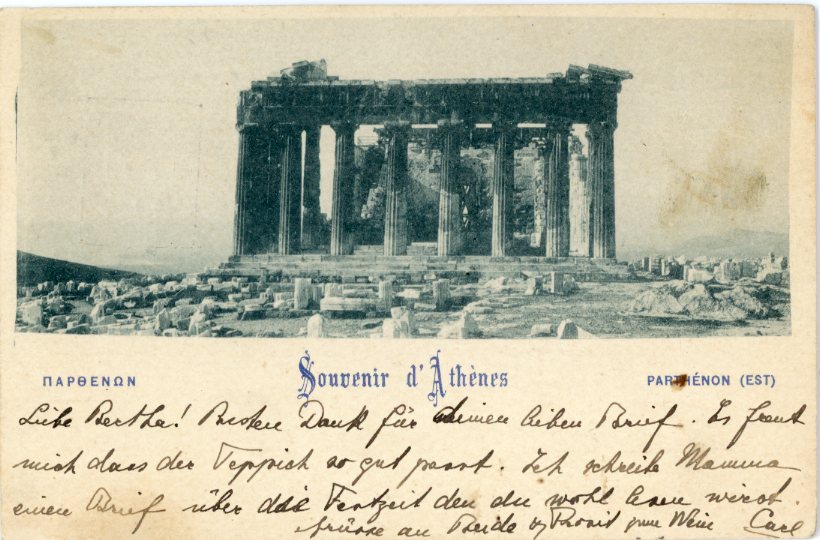 ΠΑΡΘΕΝΩΝ
Souvenir d'Athènes
PARTHÉNON (EST)
Liebe Bertha! Besten Dank für deinen lieben Brief. Es freut
mich dass der Teppich so gut passt. Ich schreibe Mamma
einen Brief über die Festzeit den du wohl lesen wirst.
Grüsse an Beide & Prosit zum Wein Carl